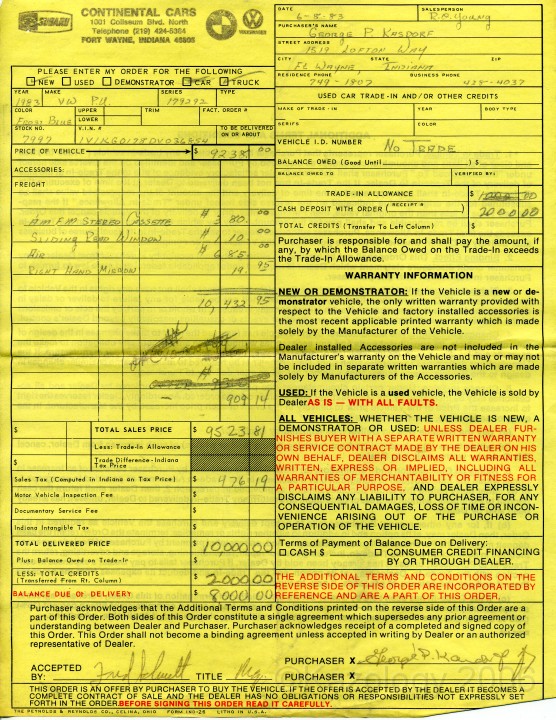 SUBARU
CONTINENTAL CARS
1001 Coliseum Blvd. North
Telephone (219) 424-6364
FORT WAYNE, INDIANA 46805
BMW
VOLKSWAGEN
DATE 6-8-83
SALESPERSON R.P. Young
PURCHASER'S NAME George P Kasdorf
STREET ADDRESS 1519 Lofton Way
CITY Ft Wayne STATE Indiana ZIP
RESIDENCE PHONE 749-1807 BUSINESS PHONE 428-4037
PLEASE ENTER MY ORDER FOR THE FOLLOWING
NEW USED DEMONSTRATOR CAR TRUCK
YEAR MAKE SERIES TYPE
1983 VW P.U. 179292
COLOR UPPER TRIM FACT. ORDER #
Frost Blue LOWER
STOCK NO. V.I.N. # TO BE DELIVERED ON OR ABOUT
7997
PRICE OF VEHICLE $ 9238 00
ACCESSORIES:
FREIGHT
Am Fm Stereo Cassette # 380 00
Sliding Rear Window # 110 00
Air # 685 00
Right Hand Mirror 19 95
10,432 95
909 14
$ TOTAL SALES PRICE $ 9523 81
$ Less: Trade-In Allowance
$ Trade Difference-Indiana Tax Price
Sales Tax (Computed in Indiana on Tax Price) $ 476 19
Motor Vehicle Inspection Fee $
Documentary Service Fee $
Indiana Intangible Tax $
TOTAL DELIVERED PRICE $ 10,000 00
Plus: Balance Owed on Trade-In $
LESS: TOTAL CREDITS (Transferred From Rt. Column) $ 2000 00
BALANCE DUE ON DELIVERY $ 8000 00
USED CAR TRADE-IN AND/OR OTHER CREDITS
MAKE OF TRADE-IN YEAR BODY TYPE
SERIES COLOR
VEHICLE I.D. NUMBER No Trade
BALANCE OWED (Good Until ) $
BALANCE OWED TO VERIFIED BY:
TRADE-IN ALLOWANCE $
CASH DEPOSIT WITH ORDER (RECEIPT # ) 2000 00
TOTAL CREDITS (Transfer To Left Column) $
Purchaser is responsible for and shall pay the amount, if
any, by which the Balance Owed on the Trade-In exceeds
the Trade-In Allowance.
WARRANTY INFORMATION
NEW OR DEMONSTRATOR: If the Vehicle is a new or de-
monstrator vehicle, the only written warranty provided with
respect to the Vehicle and factory installed accessories is
the most recent applicable printed warranty which is made
solely by the Manufacturer of the Vehicle.
Dealer installed Accessories are not included in the
Manufacturer's warranty on the Vehicle and may or may not
be included in separate written warranties which are made
solely by Manufacturers of the Accessories.
USED: If the Vehicle is a used vehicle, the Vehicle is sold by
Dealer AS IS — WITH ALL FAULTS.
ALL VEHICLES: WHETHER THE VEHICLE IS NEW, A
DEMONSTRATOR OR USED: UNLESS DEALER FUR-
NISHES BUYER WITH A SEPARATE WRITTEN WARRANTY
OR SERVICE CONTRACT MADE BY THE DEALER ON HIS
OWN BEHALF, DEALER DISCLAIMS ALL WARRANTIES,
WRITTEN, EXPRESS OR IMPLIED, INCLUDING ALL
WARRANTIES OF MERCHANTABILITY OR FITNESS FOR
A PARTICULAR PURPOSE, AND DEALER EXPRESSLY
DISCLAIMS ANY LIABILITY TO PURCHASER, FOR ANY
CONSEQUENTIAL DAMAGES, LOSS OF TIME OR INCON-
VENIENCE ARISING OUT OF THE PURCHASE OR
OPERATION OF THE VEHICLE.
Terms of Payment of Balance Due on Delivery:
CASH $ CONSUMER CREDIT FINANCING
BY OR THROUGH DEALER.
THE ADDITIONAL TERMS AND CONDITIONS ON THE
REVERSE SIDE OF THIS ORDER ARE INCORPORATED BY
REFERENCE AND ARE A PART OF THIS ORDER.
Purchaser acknowledges that the Additional Terms and Conditions printed on the reverse side of this Order are a
part of this Order. Both sides of this Order constitute a single agreement which supersedes any prior agreement or
understanding between Dealer and Purchaser. Purchaser acknowledges receipt of a completed and signed copy of
this Order. This Order shall not become a binding agreement unless accepted in writing by Dealer or an authorized
representative of Dealer.
ACCEPTED BY: TITLE Mgr.
PURCHASER X George P. Kasdorf Jr
PURCHASER X
THIS ORDER IS AN OFFER BY PURCHASER TO BUY THE VEHICLE. IF THE OFFER IS ACCEPTED BY THE DEALER IT BECOMES A
COMPLETE CONTRACT OF SALE AND THE DEALER HAS NO OBLIGATIONS OR RESPONSIBILITIES NOT EXPRESSLY SET
FORTH IN THE ORDER. BEFORE SIGNING THIS ORDER READ IT CAREFULLY.
THE REYNOLDS & REYNOLDS CO., CELINA, OHIO FORM IND-26 LITHO IN U.S.A.